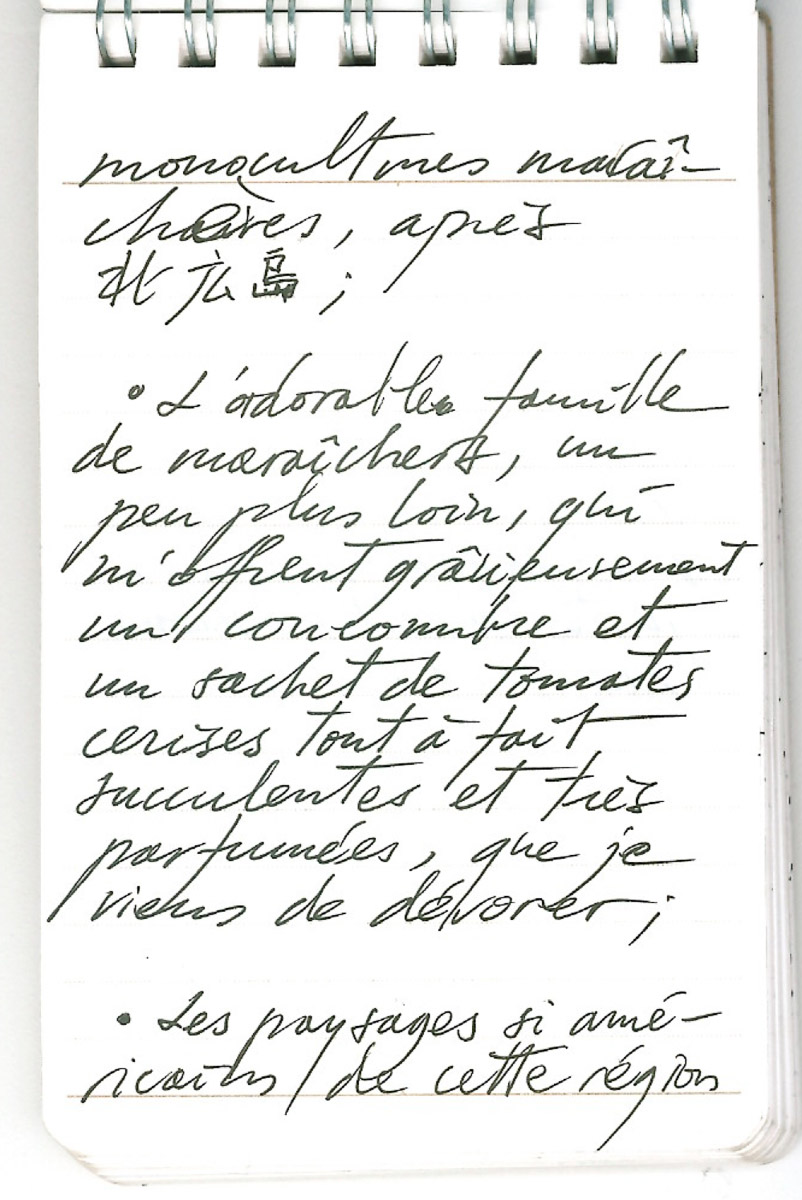 monocultures maraî-
chères, après
北広島 ;
• L'adorable famille
de maraîchers, un
peu plus loin, qui
m'offrent grâcieusement
un concombre et
un sachet de tomates
cerises tout à fait
succulentes et très
parfumées, que je
viens de dévorer ;
• Les paysages si amé-
ricains de cette région